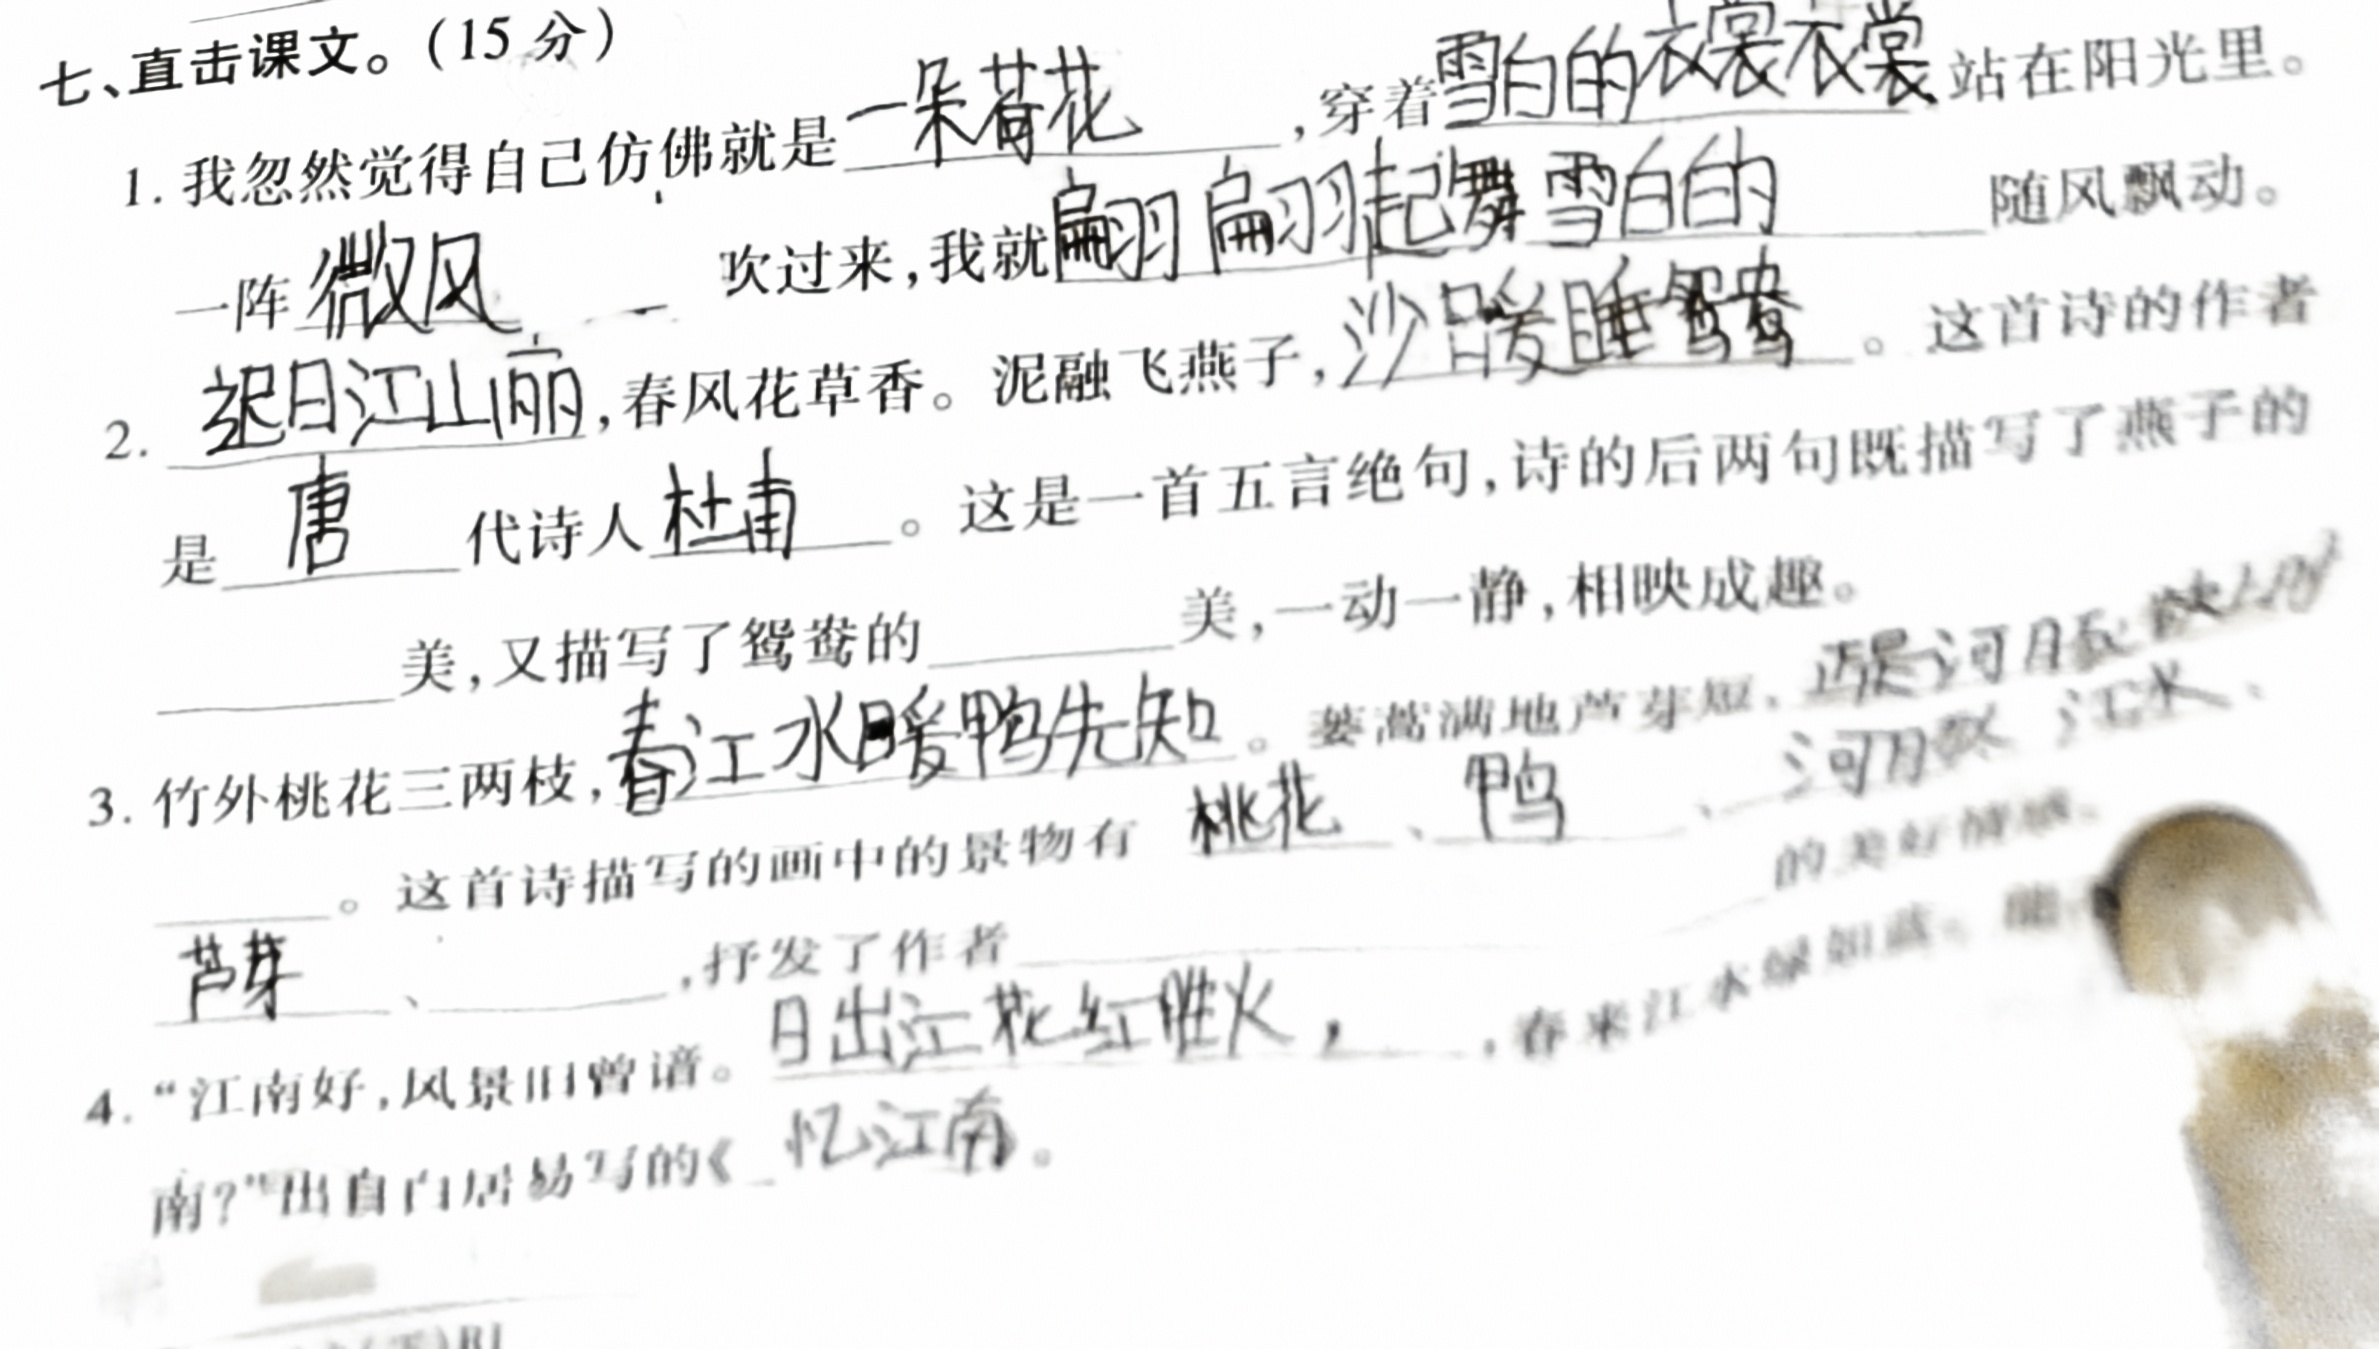 七、直击课文。(15分)
1. 我忽然觉得自己仿佛就是一朵荷花,穿着雪白的衣裳衣裳站在阳光里。
一阵微风吹过来,我就翩翩起舞雪白的随风飘动。
2. 迟日江山丽,春风花草香。泥融飞燕子,沙暖睡鸳鸯。这首诗的作者
是唐代诗人杜甫。这是一首五言绝句,诗的后两句既描写了燕子的
美,又描写了鸳鸯的美,一动一静,相映成趣。
3. 竹外桃花三两枝,春江水暖鸭先知。蒌蒿满地芦芽短,正是河豚欲上时
。这首诗描写的画中的景物有桃花、鸭、河豚、江水、
芦芽、,抒发了作者的美好情感。
4. “江南好,风景旧曾谙。日出江花红胜火,,春来江水绿如蓝。能
南?”出自白居易写的《忆江南。